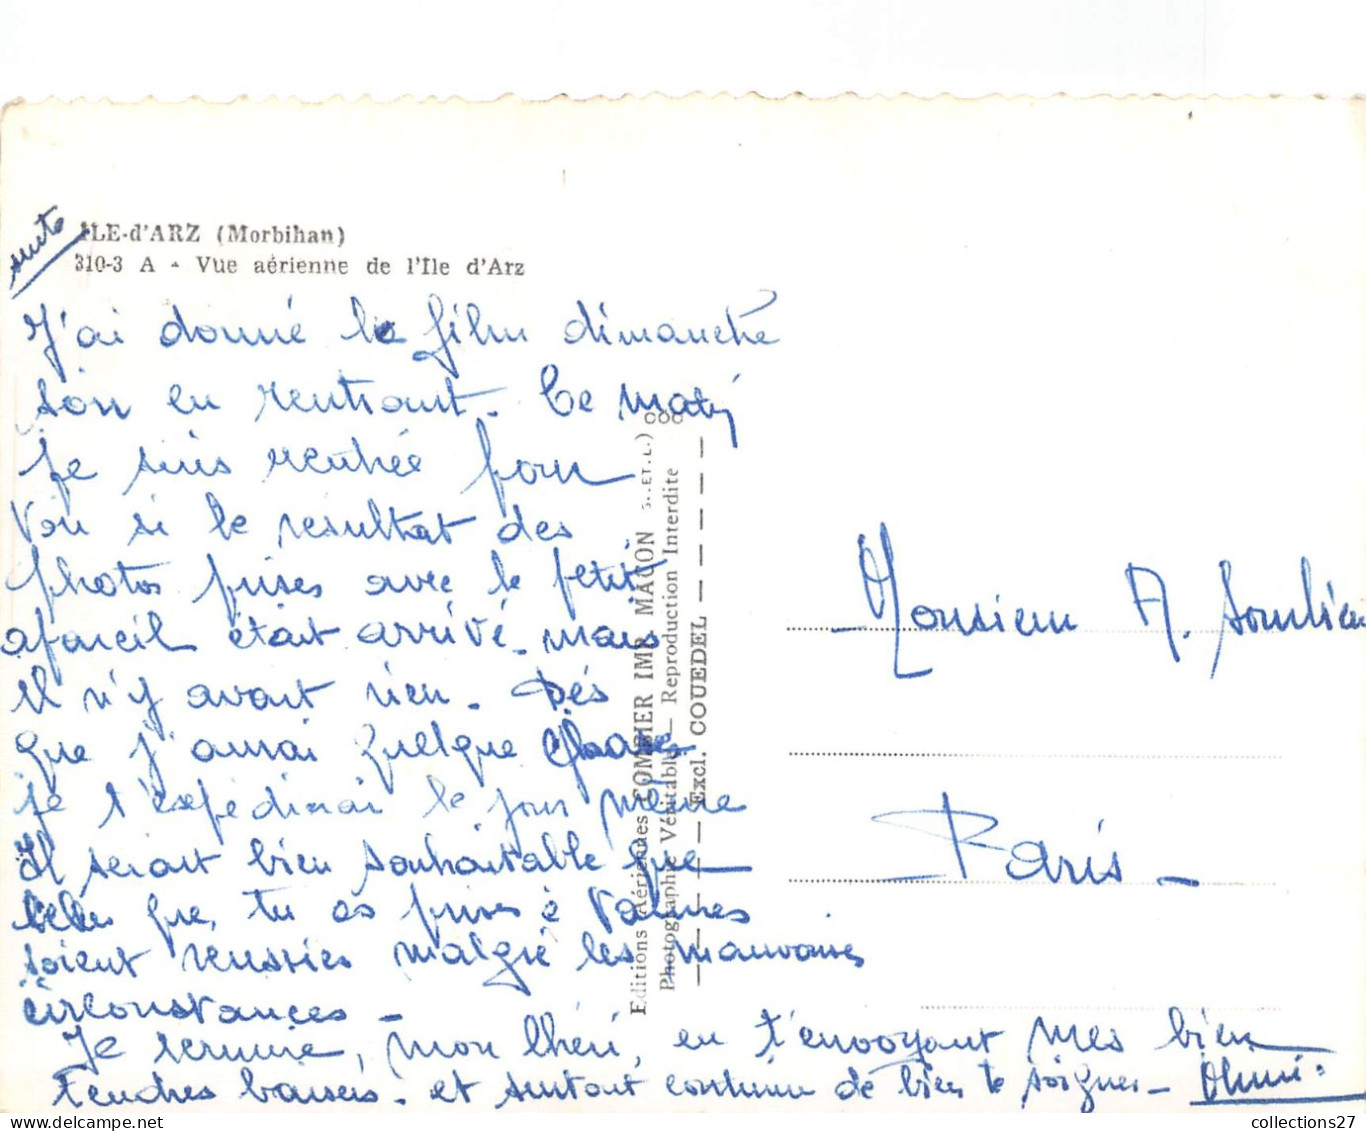 suite
ILE-d'ARZ (Morbihan)
310-3 A - Vue aérienne de l'Ile d'Arz
J'ai donné le film dimanche
soir en rentrant. Ce matin
je suis rentrée pour
voir si le résultat des
photos prises avec le petit
apareil était arrivé. mais
il n'y avait rien. Dès
que j'aurai quelque chose
je t'expédirai le jour même
Il serait bien souhaitable que
celles que tu as prises à Vannes
soient reussies malgré les mauvaises
circonstances -
Je termine, mon chéri, en t'envoyant mes bien
tendres baisers. et surtout continue de bien te soigner -
Editions Aériennes COMBIER IMP. MACON (S.ET.L.) COC
Photographie Véritable - Reproduction Interdite
Excl. COUEDEL
Monsieur A.
Paris -
collections27